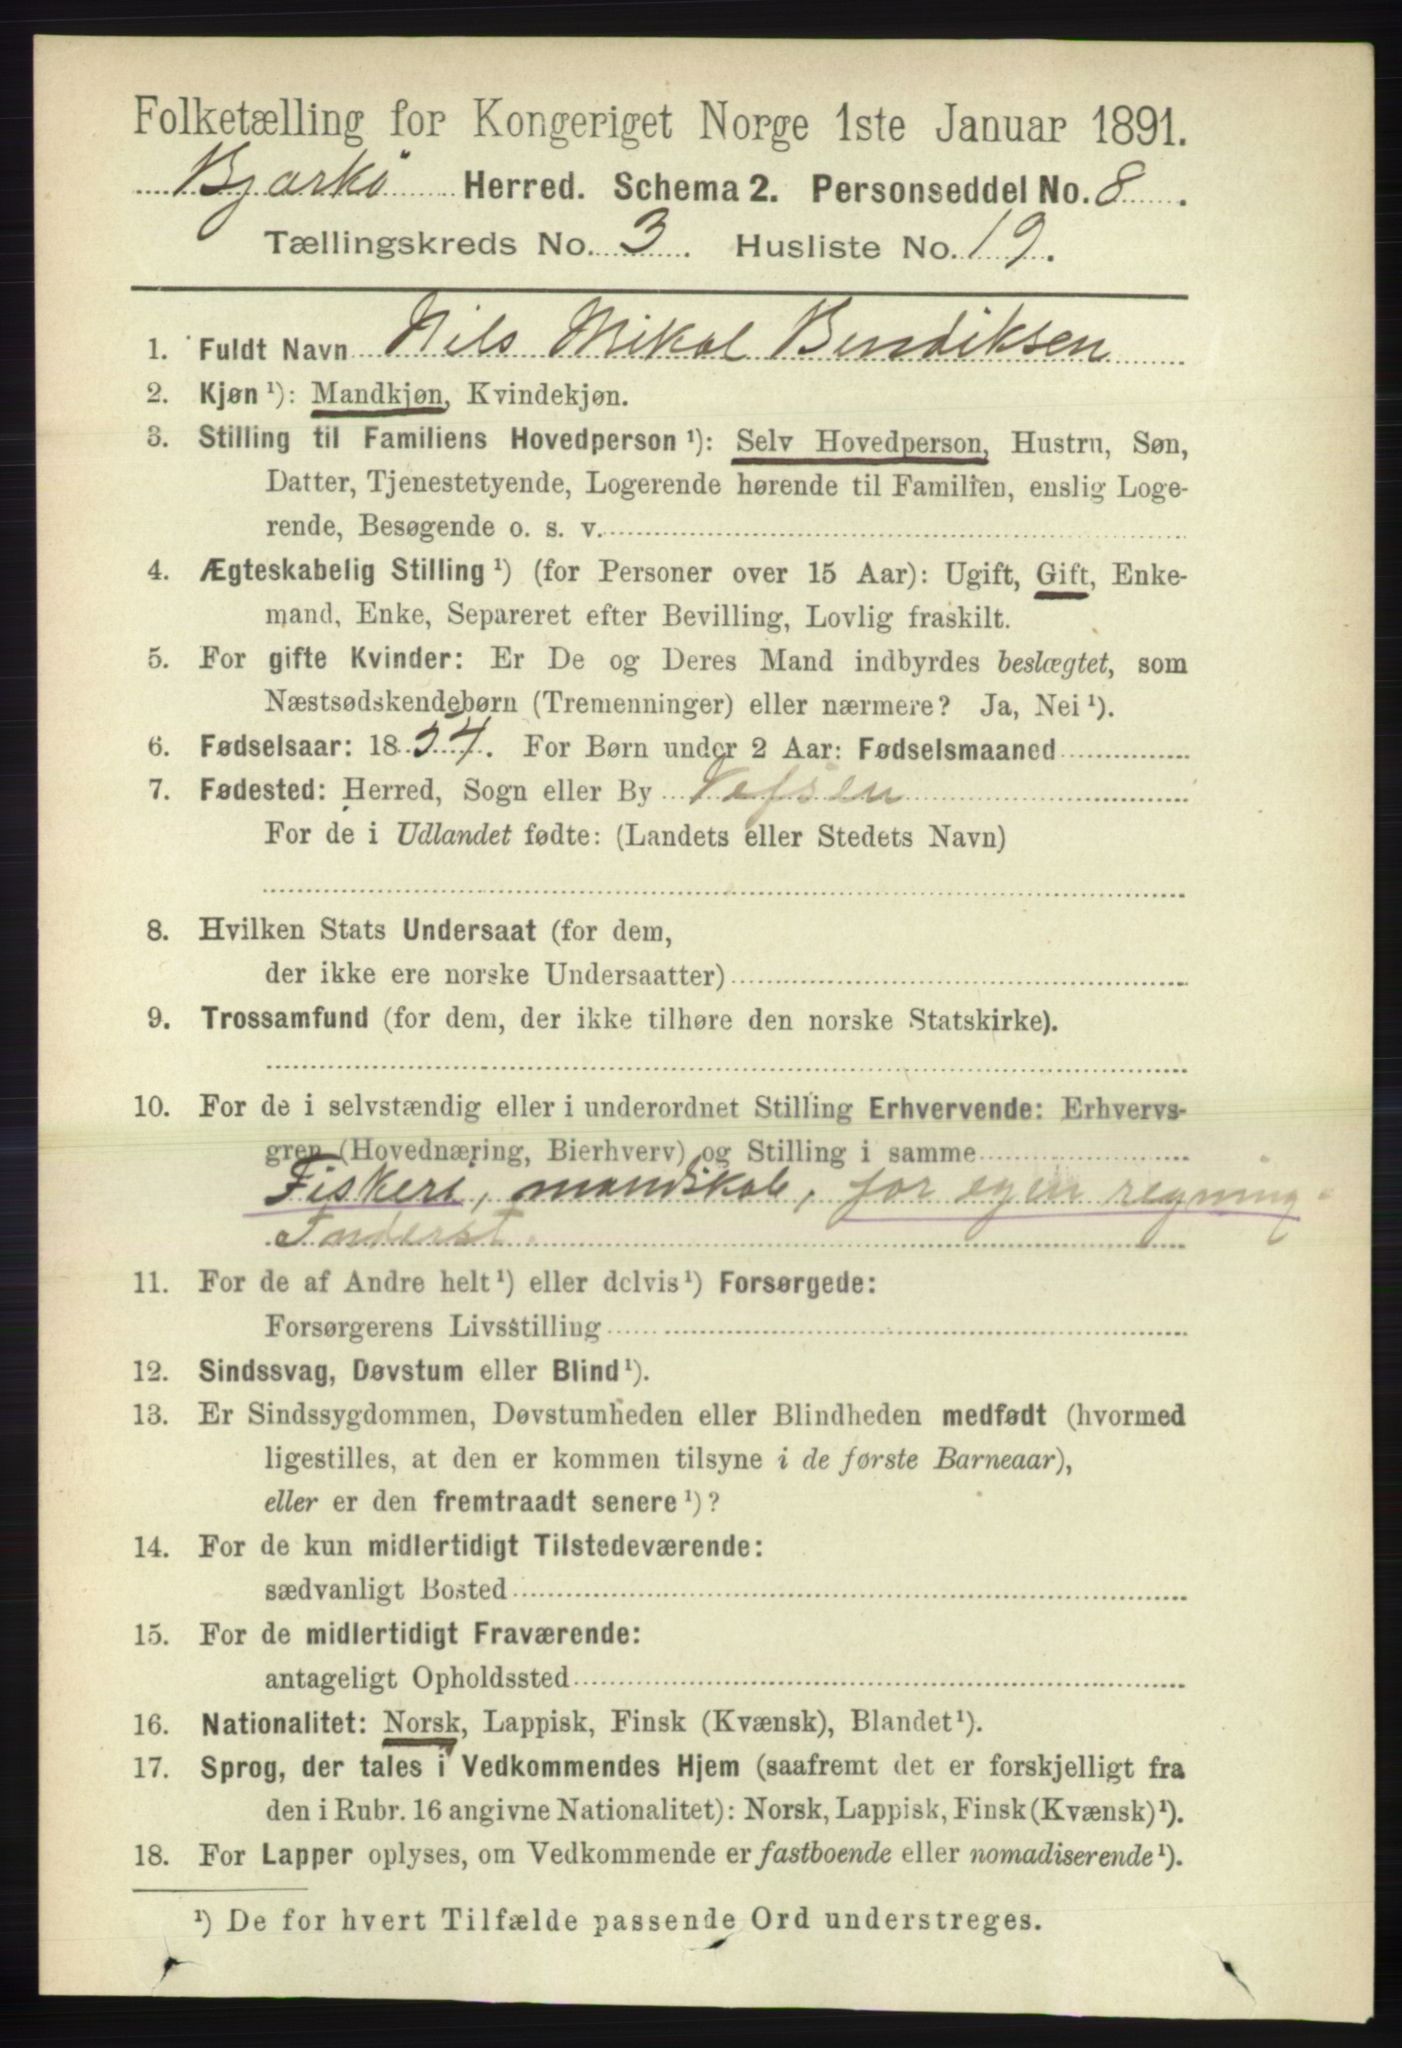 Folketælling for Kongeriget Norge 1ste Januar 1891.
Bjarkø Herred. Schema 2. Personseddel No. 8.
Tællingskreds No. 3. Husliste No. 19.
1. Fuldt Navn Nils Mikal Bendiksen
2. Kjøn ¹): Mandkjøn, Kvindekjøn.
3. Stilling til Familiens Hovedperson ¹): Selv Hovedperson, Hustru, Søn,
Datter, Tjenestetyende, Logerende hørende til Familien, enslig Loge-
rende, Besøgende o. s. v.
4. Ægteskabelig Stilling ¹) (for Personer over 15 Aar): Ugift, Gift, Enke-
mand, Enke, Separeret efter Bevilling, Lovlig fraskilt.
5. For gifte Kvinder: Er De og Deres Mand indbyrdes beslægtet, som
Næstsødskendebørn (Tremenninger) eller nærmere? Ja, Nei ¹).
6. Fødselsaar: 1854. For Børn under 2 Aar: Fødselsmaaned
7. Fødested: Herred, Sogn eller By Vefsen
For de i Udlandet fødte: (Landets eller Stedets Navn)
8. Hvilken Stats Undersaat (for dem,
der ikke ere norske Undersaatter)
9. Trossamfund (for dem, der ikke tilhøre den norske Statskirke).
10. For de i selvstændig eller i underordnet Stilling Erhvervende: Erhvervs-
gren (Hovednæring, Bierhverv) og Stilling i samme
Fiskeri, mandskab, for egen regning.
Inderst.
11. For de af Andre helt ¹) eller delvis ¹) Forsørgede:
Forsørgerens Livsstilling
12. Sindssvag, Døvstum eller Blind ¹).
13. Er Sindssygdommen, Døvstumheden eller Blindheden medfødt (hvormed
ligestilles, at den er kommen tilsyne i de første Barneaar),
eller er den fremtraadt senere ¹)?
14. For de kun midlertidigt Tilstedeværende:
sædvanligt Bosted
15. For de midlertidigt Fraværende:
antageligt Opholdssted
16. Nationalitet: Norsk, Lappisk, Finsk (Kvænsk), Blandet ¹).
17. Sprog, der tales i Vedkommendes Hjem (saafremt det er forskjelligt fra
den i Rubr. 16 angivne Nationalitet): Norsk, Lappisk, Finsk (Kvænsk) ¹).
18. For Lapper oplyses, om Vedkommende er fastboende eller nomadiserende ¹).
¹) De for hvert Tilfælde passende Ord understreges.